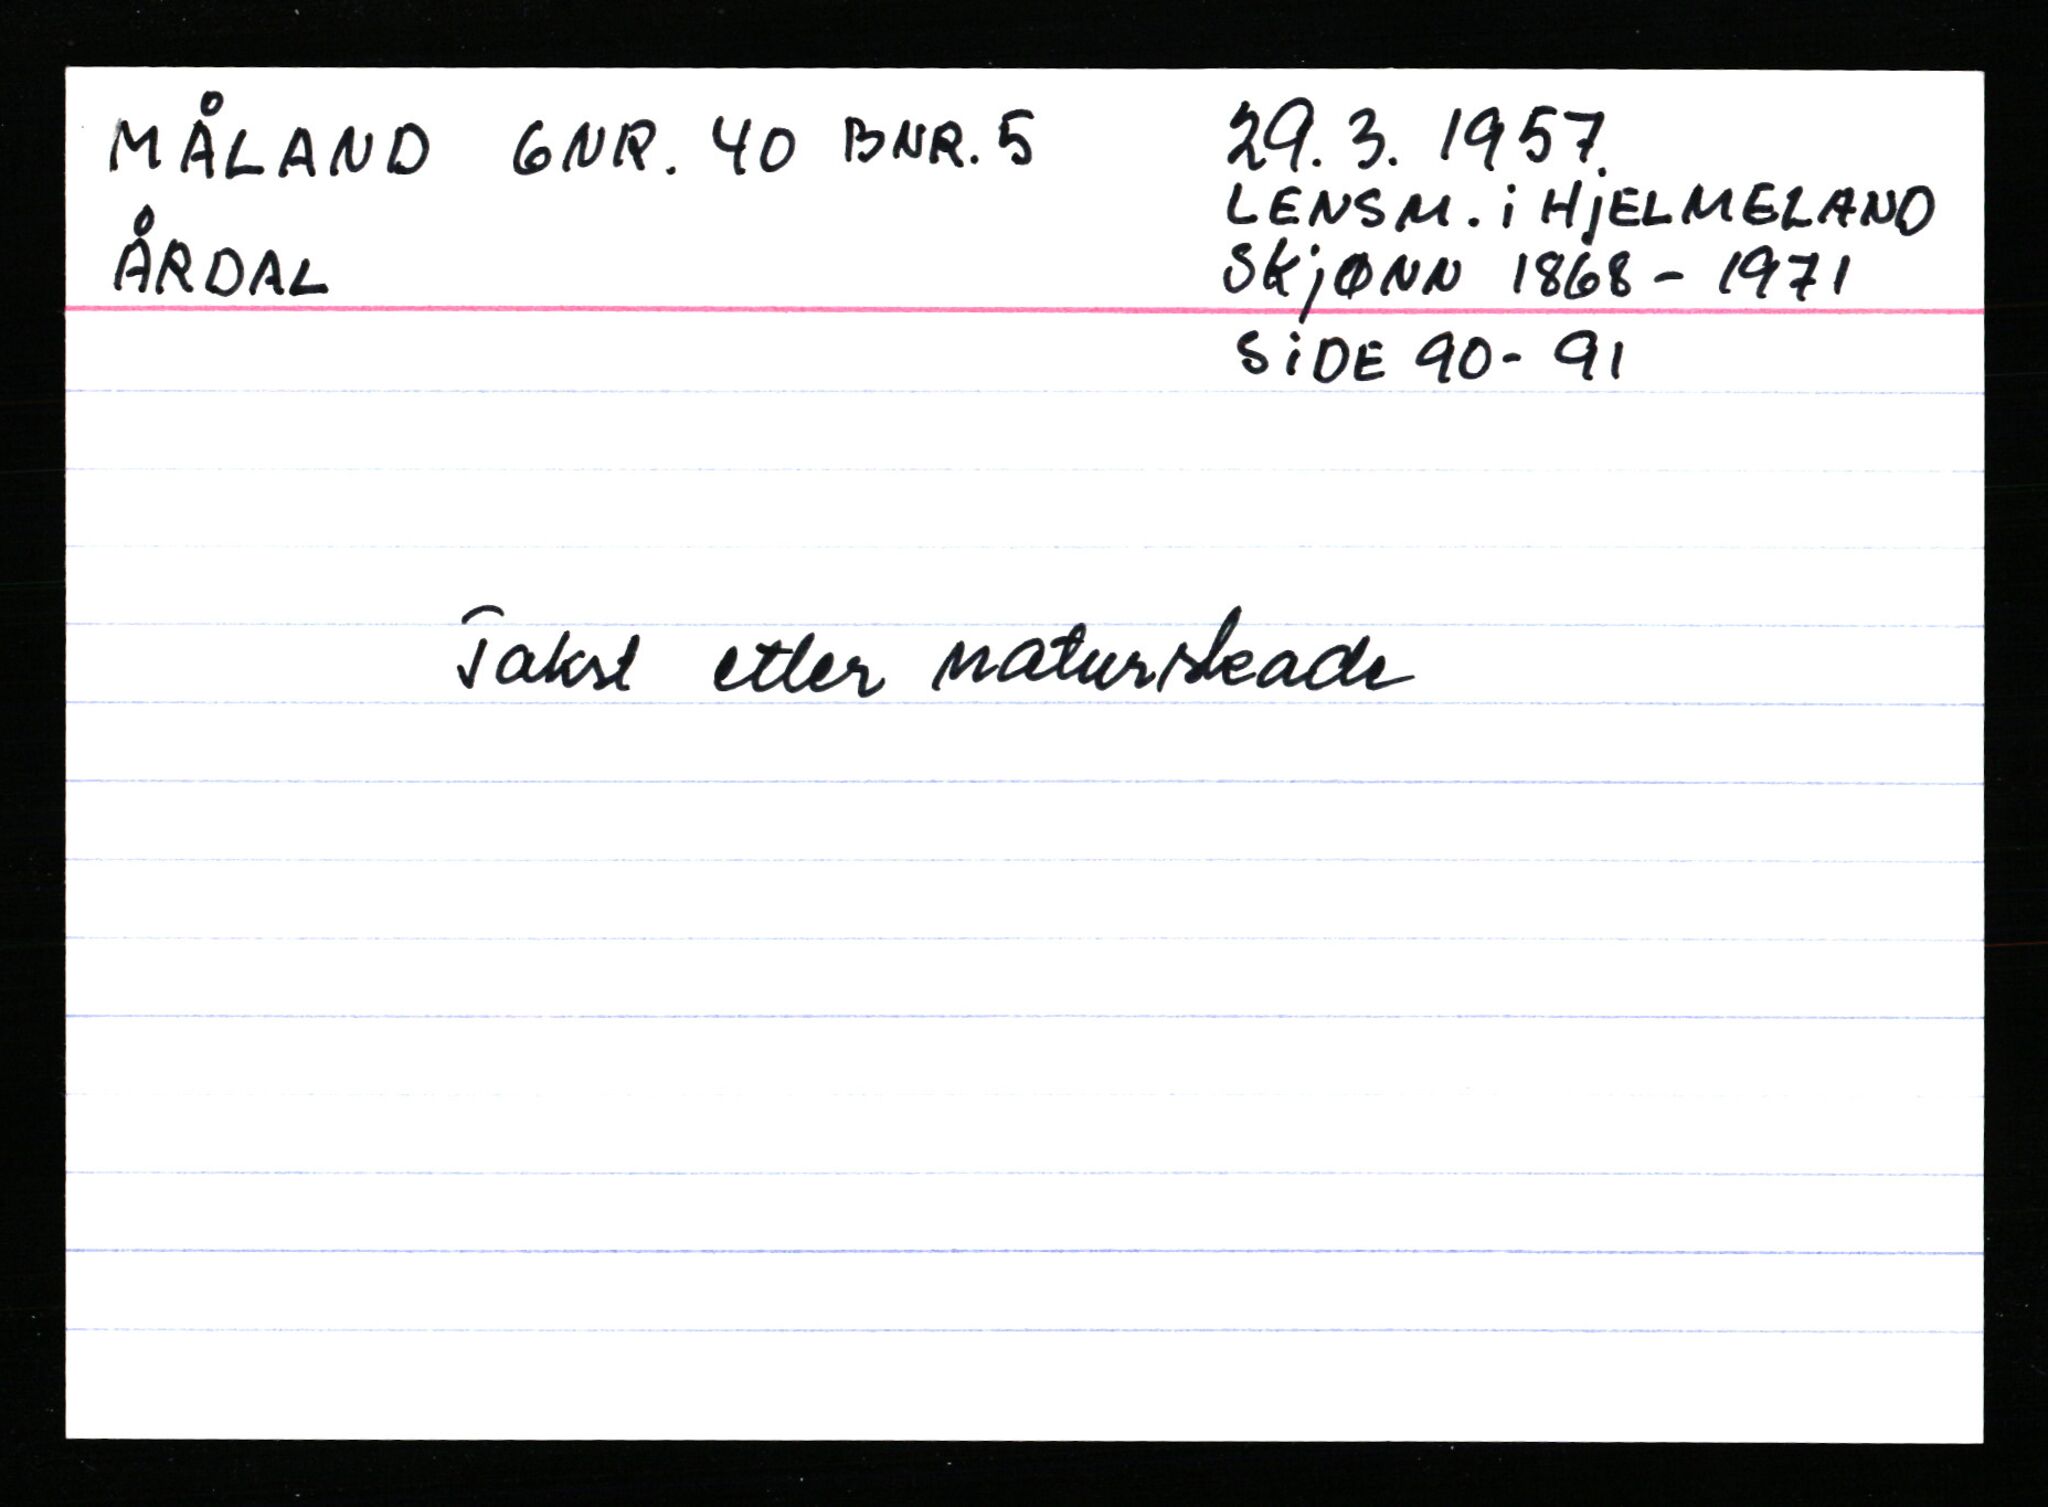 MÅLAND GNR. 40 BNR. 5
ÅRDAL
29. 3. 1957.
LENSM. i HjELMELAND
SKjØNN 1868 - 1971
SiDE 90 - 91
Takst etter naturskade